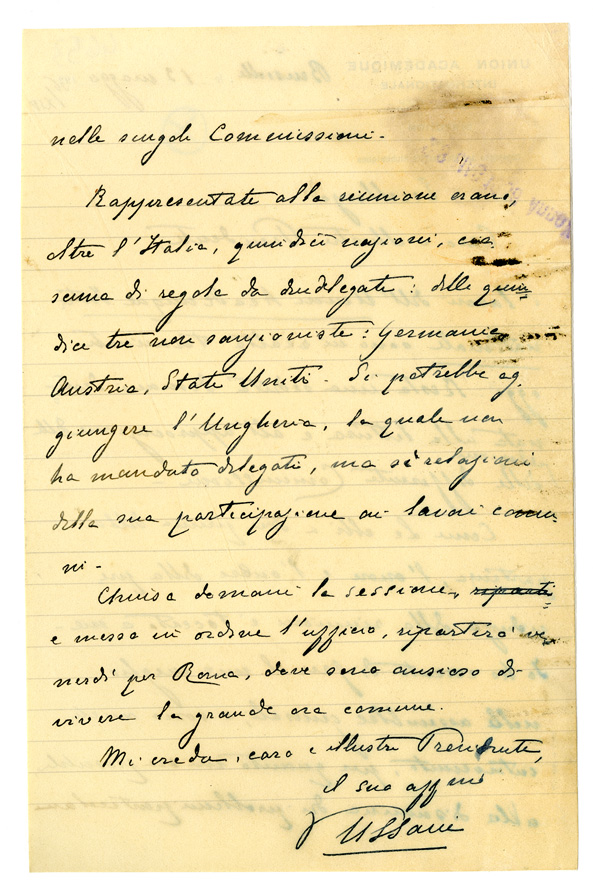 nelle singole Commissioni.
Rappresentate alla riunione erano,
oltre l'Italia, quindici nazioni, cia
scuna di regola da due delegati: delle quin-
dici tre non sanzioniste: Germania,
Austria, Stati Uniti. Si potrebbe ag-
giungere l'Ungheria, la quale non
ha mandato delegati, ma sì relazioni
della sua partecipazione ai lavori comu-
ni.
Chiusa domani la sessione, riparti
e messa in ordine l'ufficio, ripartirò ve-
nerdì per Roma, dove sono ansioso di
vivere la grande ora comune.
Mi creda, caro e illustre Presidente,
il suo affmo
VUssani